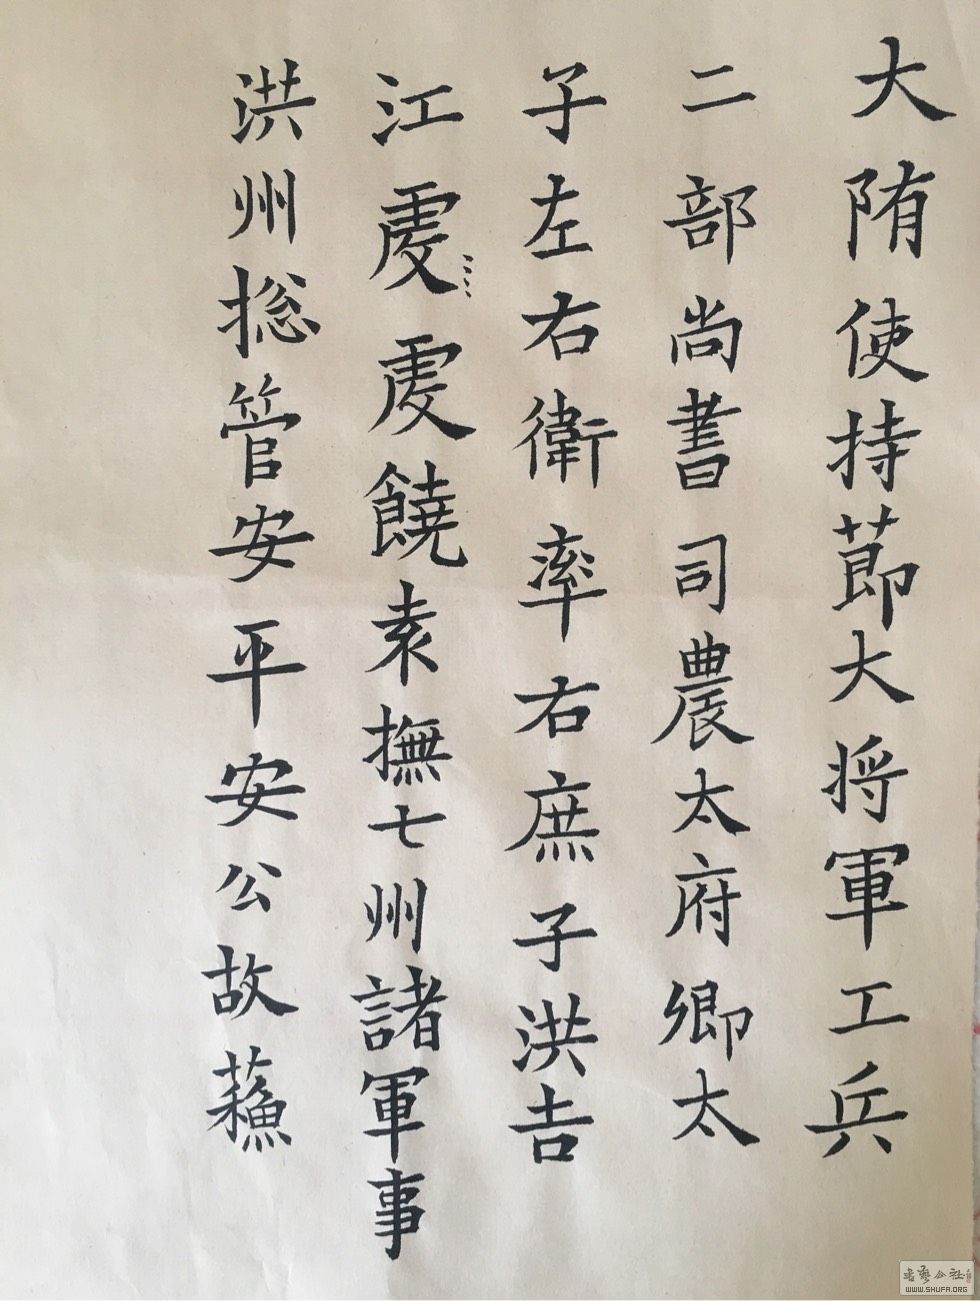 大隋使持節大将軍工兵
二部尚書司農太府卿太
子左右衛率右庶子洪吉
江虔虔饒袁撫七州諸軍事
洪州捴管安平安公故蘓
書藝公社
WWW.SHUFA.ORG